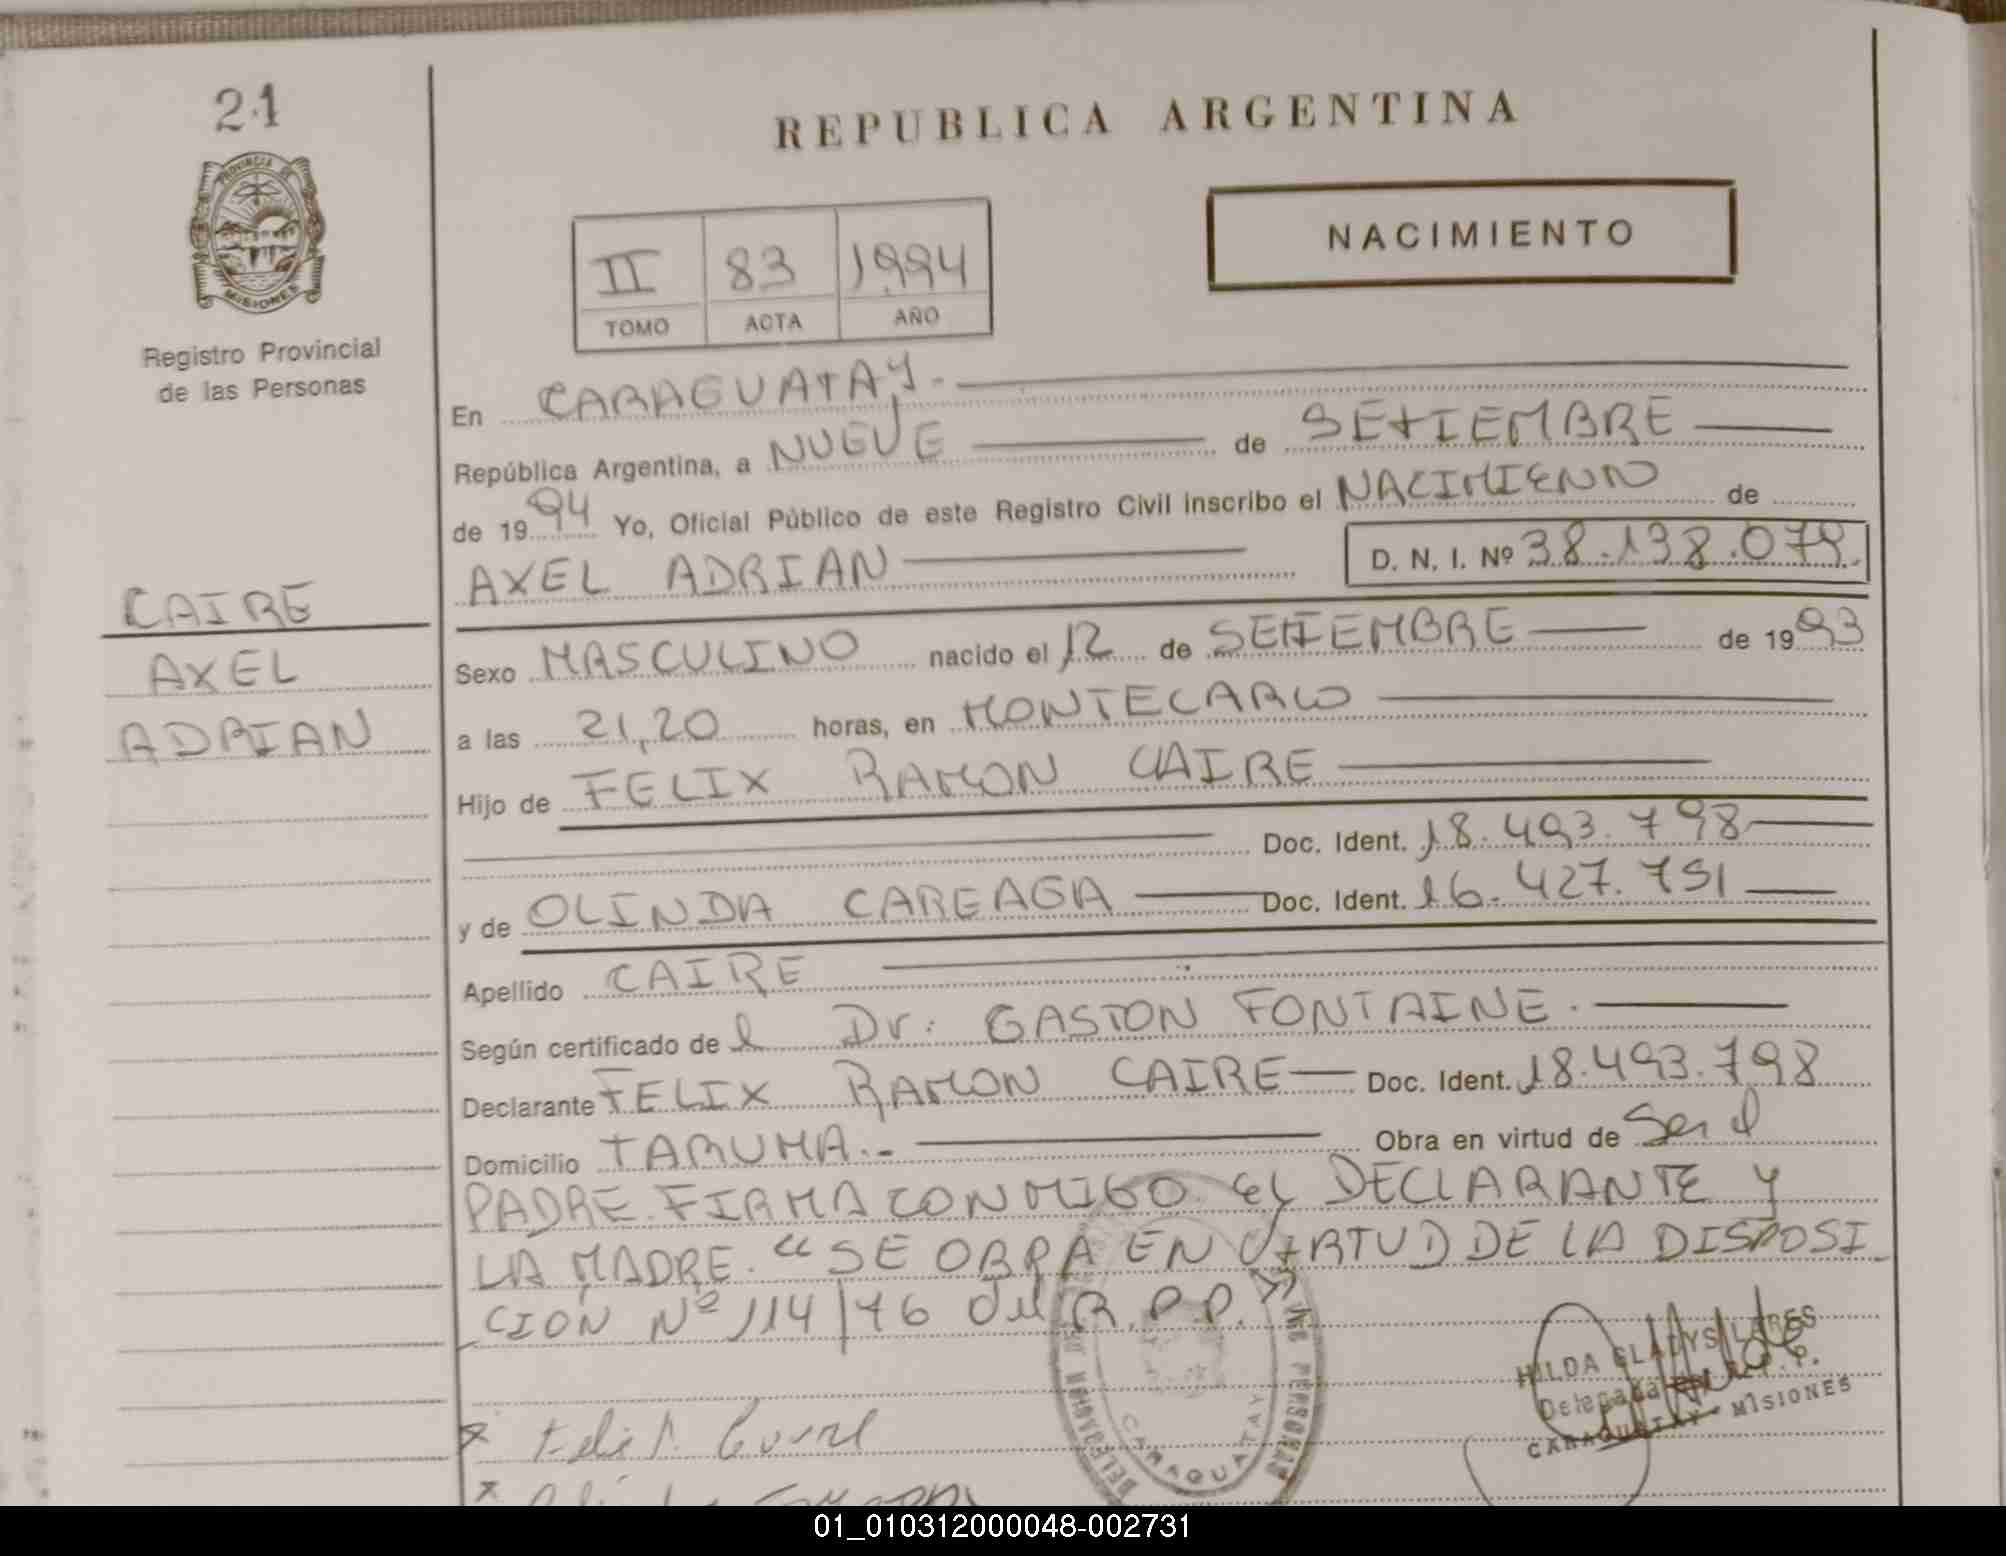 21
PROVINCIA DE
MISIONES
Registro Provincial
de las Personas
REPUBLICA ARGENTINA
II 83 1994
TOMO ACTA AÑO
NACIMIENTO
En CARAGUATAY.-
República Argentina, a NUEVE de SETIEMBRE
de 1994 Yo, Oficial Público de este Registro Civil inscribo el NACIMIENTO de
AXEL ADRIAN D. N. I. Nº 38.138.079.
CAIRE
AXEL
ADRIAN
Sexo MASCULINO nacido el 12 de SETIEMBRE de 1993
a las 21,20 horas, en MONTECARLO
Hijo de FELIX RAMON CAIRE
Doc. Ident. 18.493.798
y de OLINDA CAREAGA Doc. Ident. 16.427.751
Apellido CAIRE
Según certificado del Dr. GASTON FONTAINE.
Declarante FELIX RAMON CAIRE Doc. Ident. 18.493.798
Domicilio TARUMA.- Obra en virtud de Ser el
PADRE. FIRMA CONMIGO EL DECLARANTE Y
LA MADRE. "SE OBRA EN VIRTUD DE LA DISPOSI
CION Nº 114/76 del R.P.P."
HILDA GLADYS
Delegada R.P.P.
CARAGUATAY - MISIONES
CARAGUATAY
01_010312000048-002731